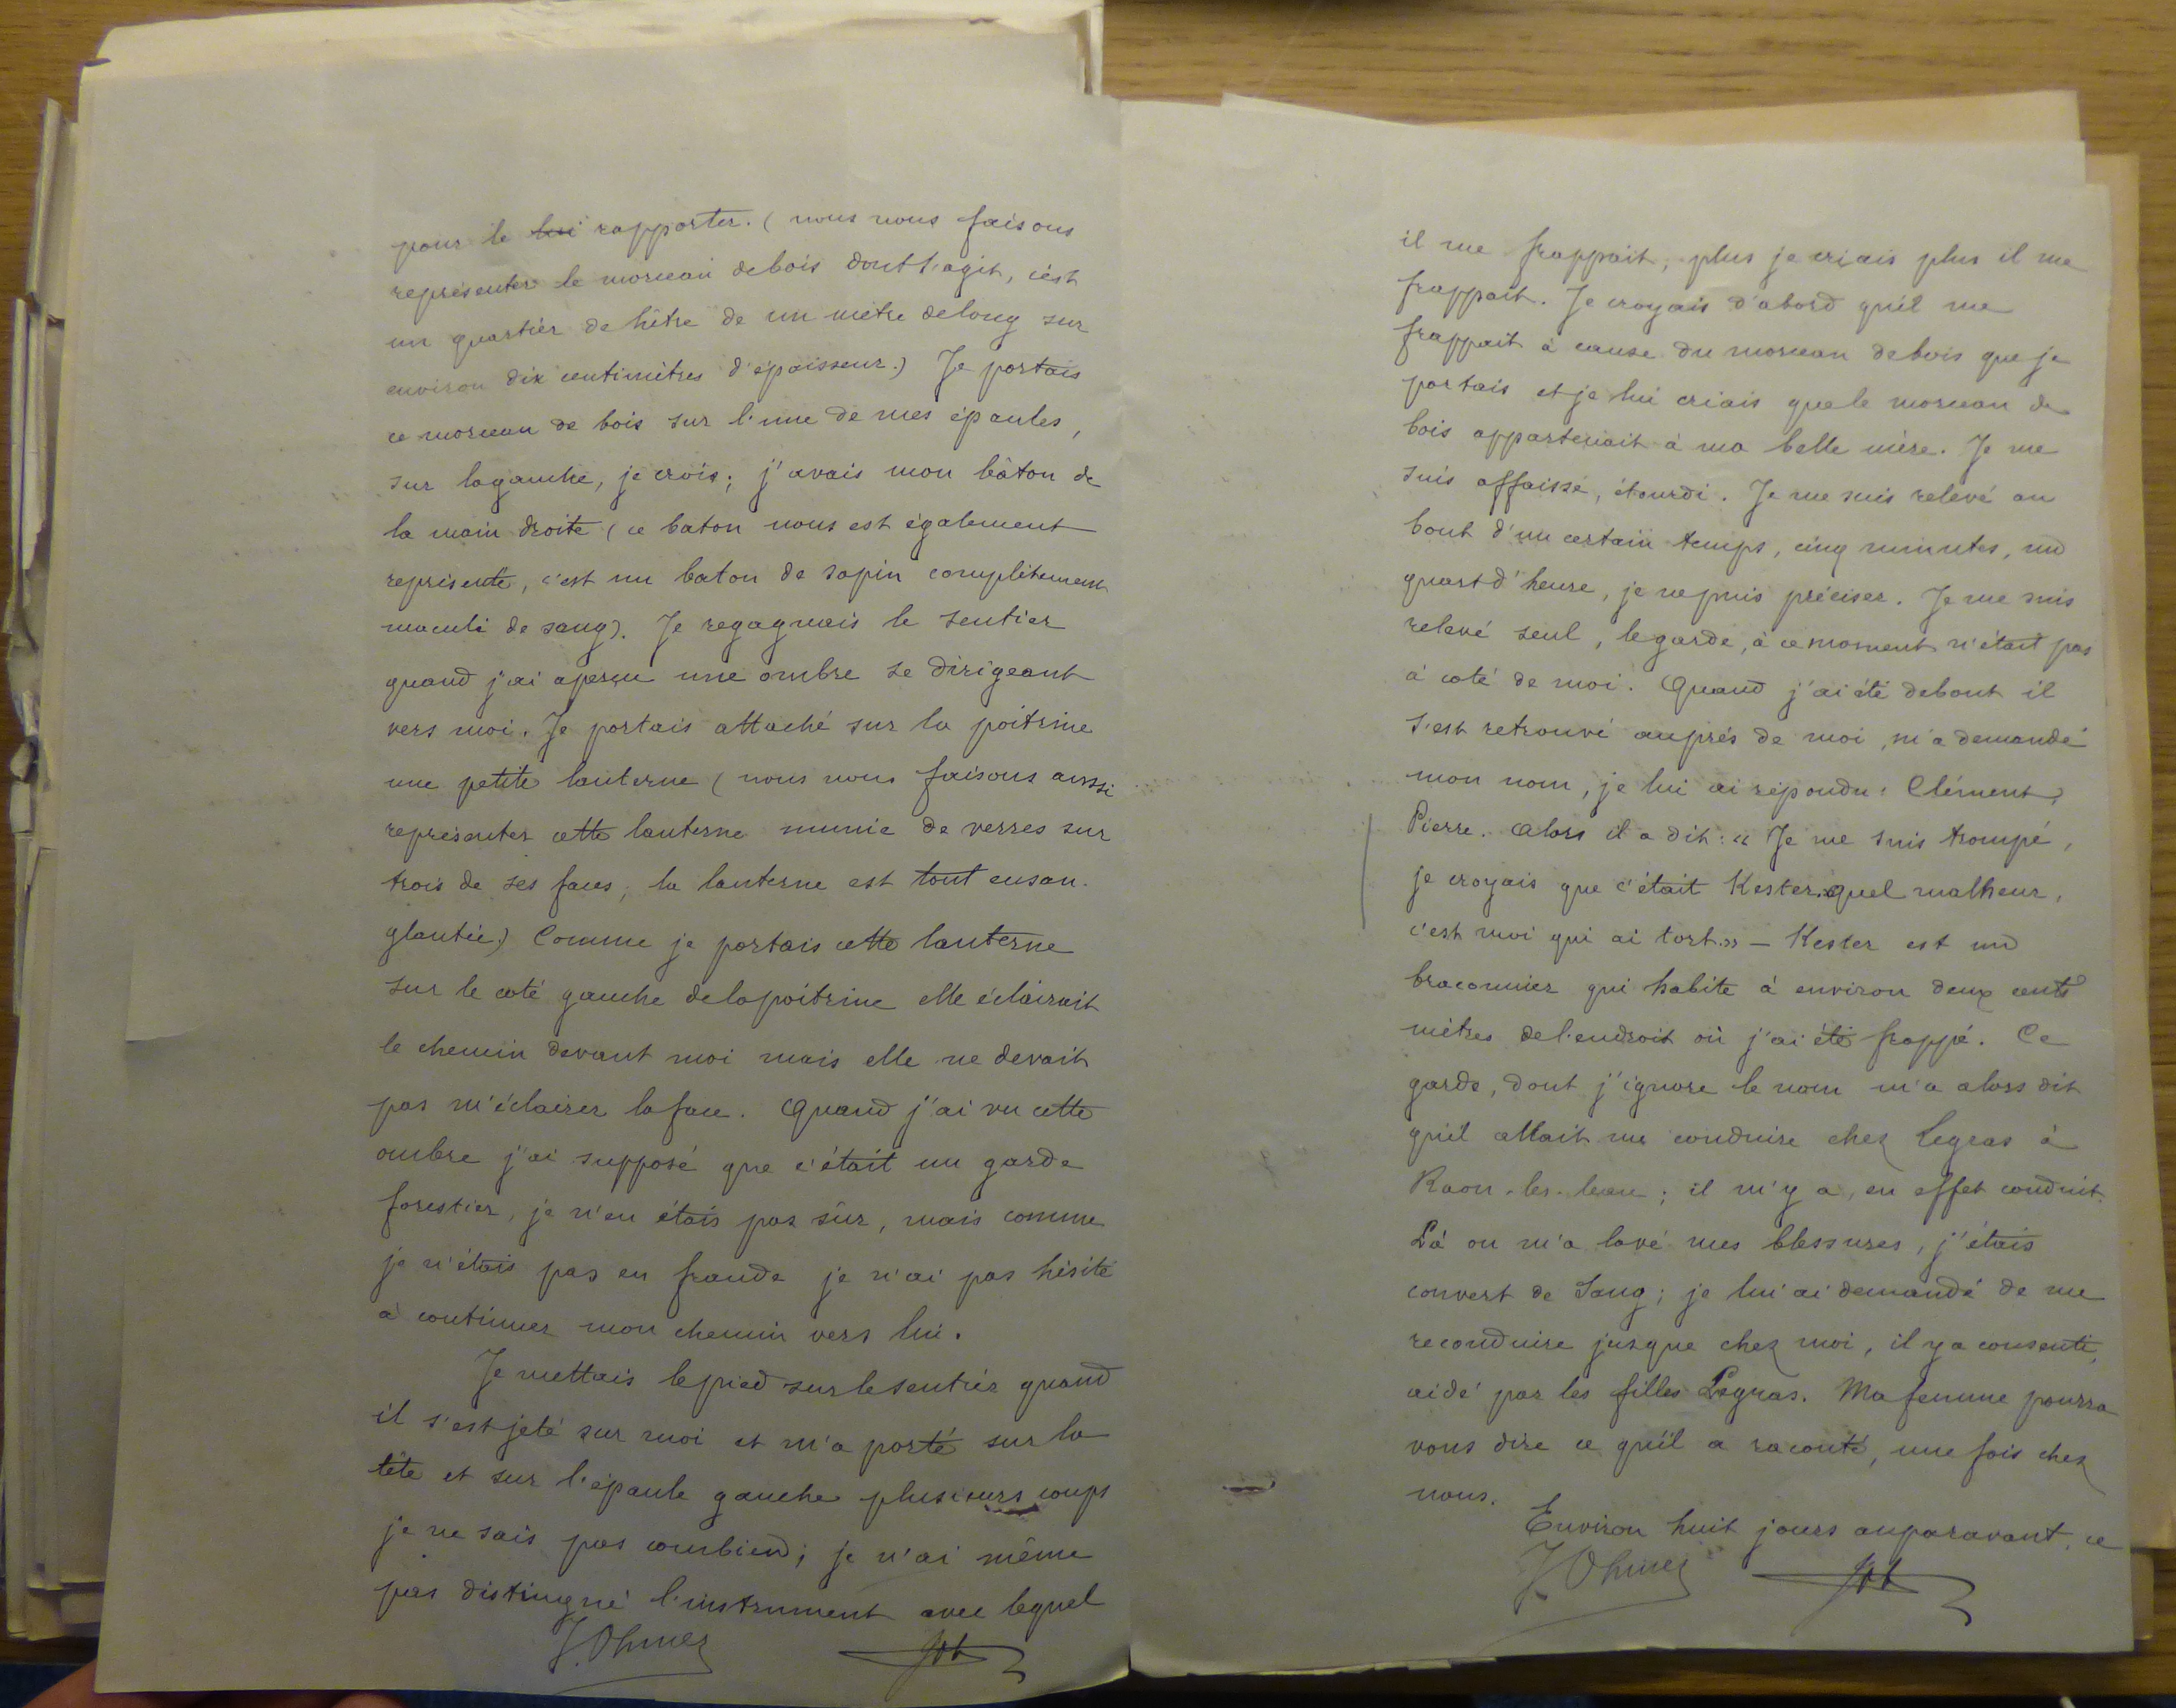 pour le lui rapporter. (nous nous faisons
représenter le morceau de bois dont s'agit, c'est
un quartier de hêtre de un mètre de long sur
environ dix centimètres d'épaisseur.) Je portais
ce morceau de bois sur l'une de mes épaules,
sur la gauche, je crois; j'avais mon bâton de
la main droite (ce baton nous est également
représenté, c'est un baton de sapin complètement
maculé de sang). Je regagnais le sentier
quand j'ai aperçu une ombre se dirigeant
vers moi. Je portais attaché sur la poitrine
une petite lanterne (nous nous faisons aussi
représenter cette lanterne munie de verres sur
trois de ses faces, la lanterne est tout ensan-
glantée.) Comme je portais cette lanterne
sur le coté gauche de la poitrine elle éclairait
le chemin devant moi mais elle ne devait
pas m'éclairer la face. Quand j'ai vu cette
ombre j'ai supposé que c'était un garde
forestier, je n'en étais pas sûr, mais comme
je n'étais pas en fraude je n'ai pas hésité
à continuer mon chemin vers lui.
Je mettais le pied sur le sentier quand
il s'est jeté sur moi et m'a porté sur la
tête et sur l'épaule gauche plusieurs coups
je ne sais pas combien; je n'ai même
pas distingué l'instrument avec lequel
J. Ohmer
il me frappait, plus je criais plus il me
frappait. Je croyais d'abord qu'il me
frappait à cause du morceau de bois que je
portais et je lui criais que le morceau de
bois appartenait à ma belle mère. Je me
suis affaissé, étourdi. Je me suis relevé au
bout d'un certain temps, cinq minutes, un
quart d'heure, je ne puis préciser. Je me suis
relevé seul, le garde, à ce moment n'était pas
à coté de moi. Quand j'ai été debout il
s'est retrouvé auprés de moi, m'a demandé
mon nom, je lui ai répondu: Clément,
Pierre. Alors il a dit: "Je me suis trompé,
je croyais que c'était Kester. quel malheur,
c'est moi qui ai tort." — Kester est un
braconnier qui habite à environ deux cents
mètres de l'endroit où j'ai été frappé. Ce
garde, dont j'ignore le nom m'a alors dit
qu'il allait me conduire chez Legras à
Raon-les-leau; il m'y a, en effet conduit.
Là on m'a lavé mes blessures, j'étais
couvert de sang; je lui ai demandé de me
reconduire jusque chez moi, il y a consenti,
aidé par les filles Legras. Ma femme pourra
vous dire ce qu'il a raconté, une fois chez
nous.
Environ huit jours auparavant, ce
J. Ohmer